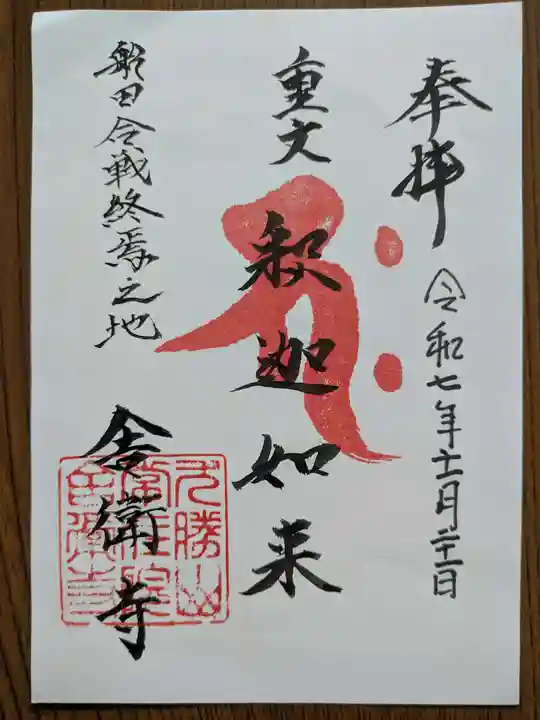 奉拝
令和七年十二月二十一日
重文
釈迦如来
船田合戦終焉之地
舎衛寺